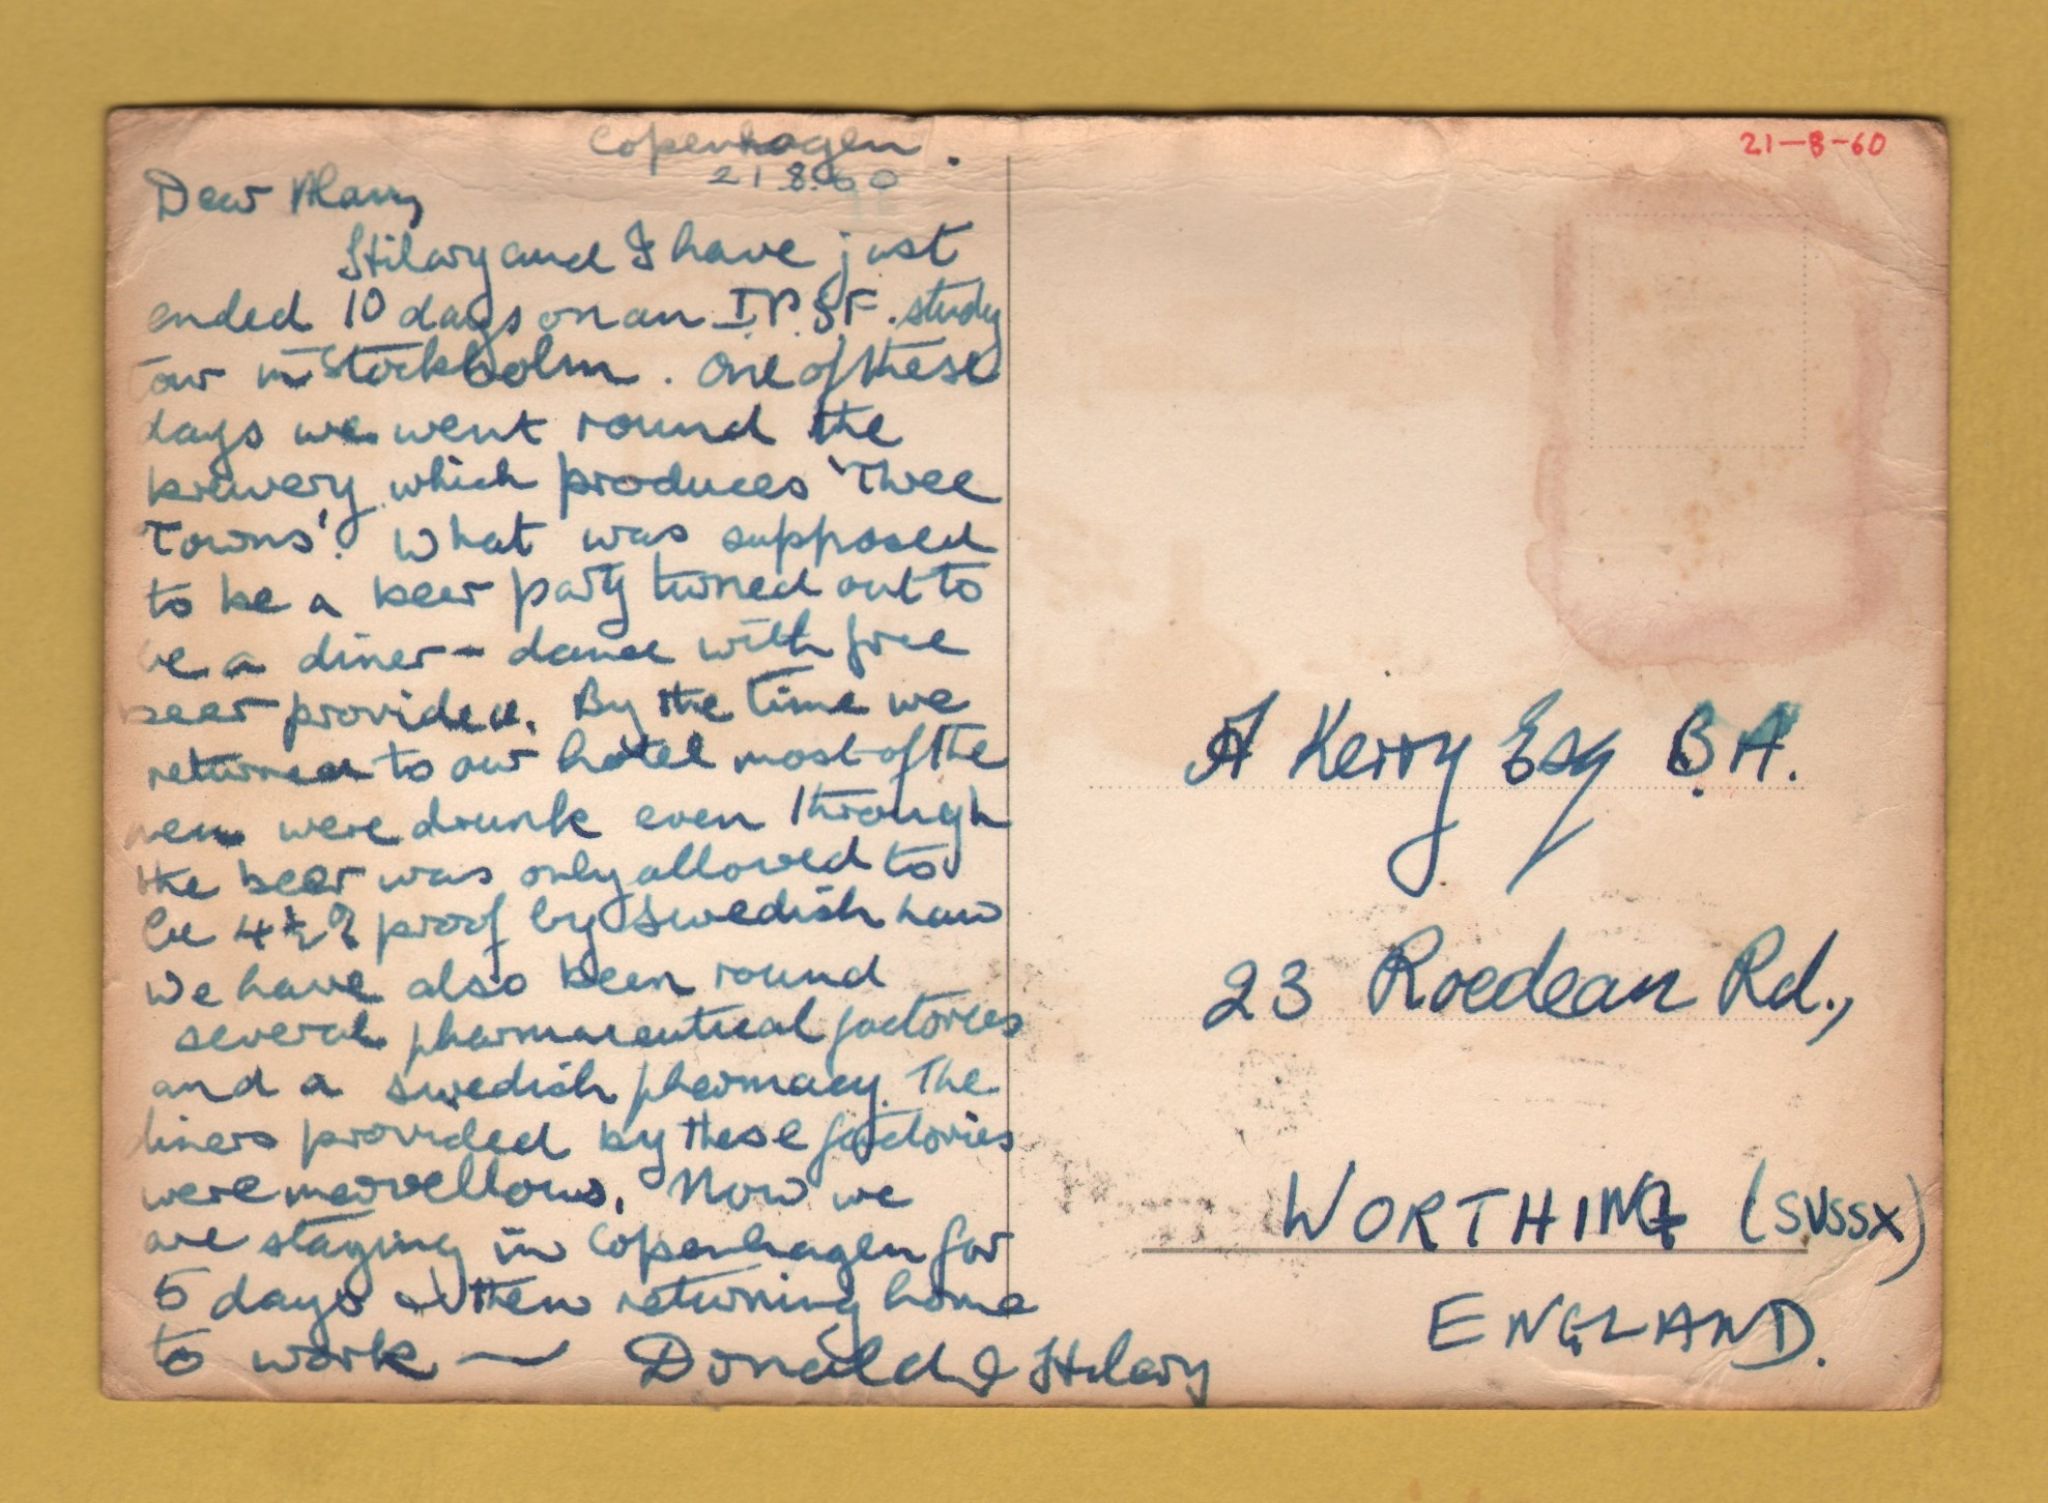 Copenhagen.
21.8.60
Dear Alan,
Hilary and I have just
ended 10 days on an I.P.S.F. study
tour in Stockholm. One of these
days we went round the
brewery which produces 'Three
Towns'. What was supposed
to be a beer party turned out to
be a diner-dance with free
beer provided. By the time we
returned to our hotel most of the
men were drunk even through
the beer was only allowed to
be 4½% proof by Swedish Law
We have also been round
several pharmaceutical factories
and a swedish pharmacy. The
diners provided by these factories
were marvellous. Now we
are staying in Copenhagen for
5 days & then returning home
to work — Donald & Hilary
21-8-60
A Kerry Esq B.A.
23 Roedean Rd.,
WORTHING (SUSSX)
ENGLAND.